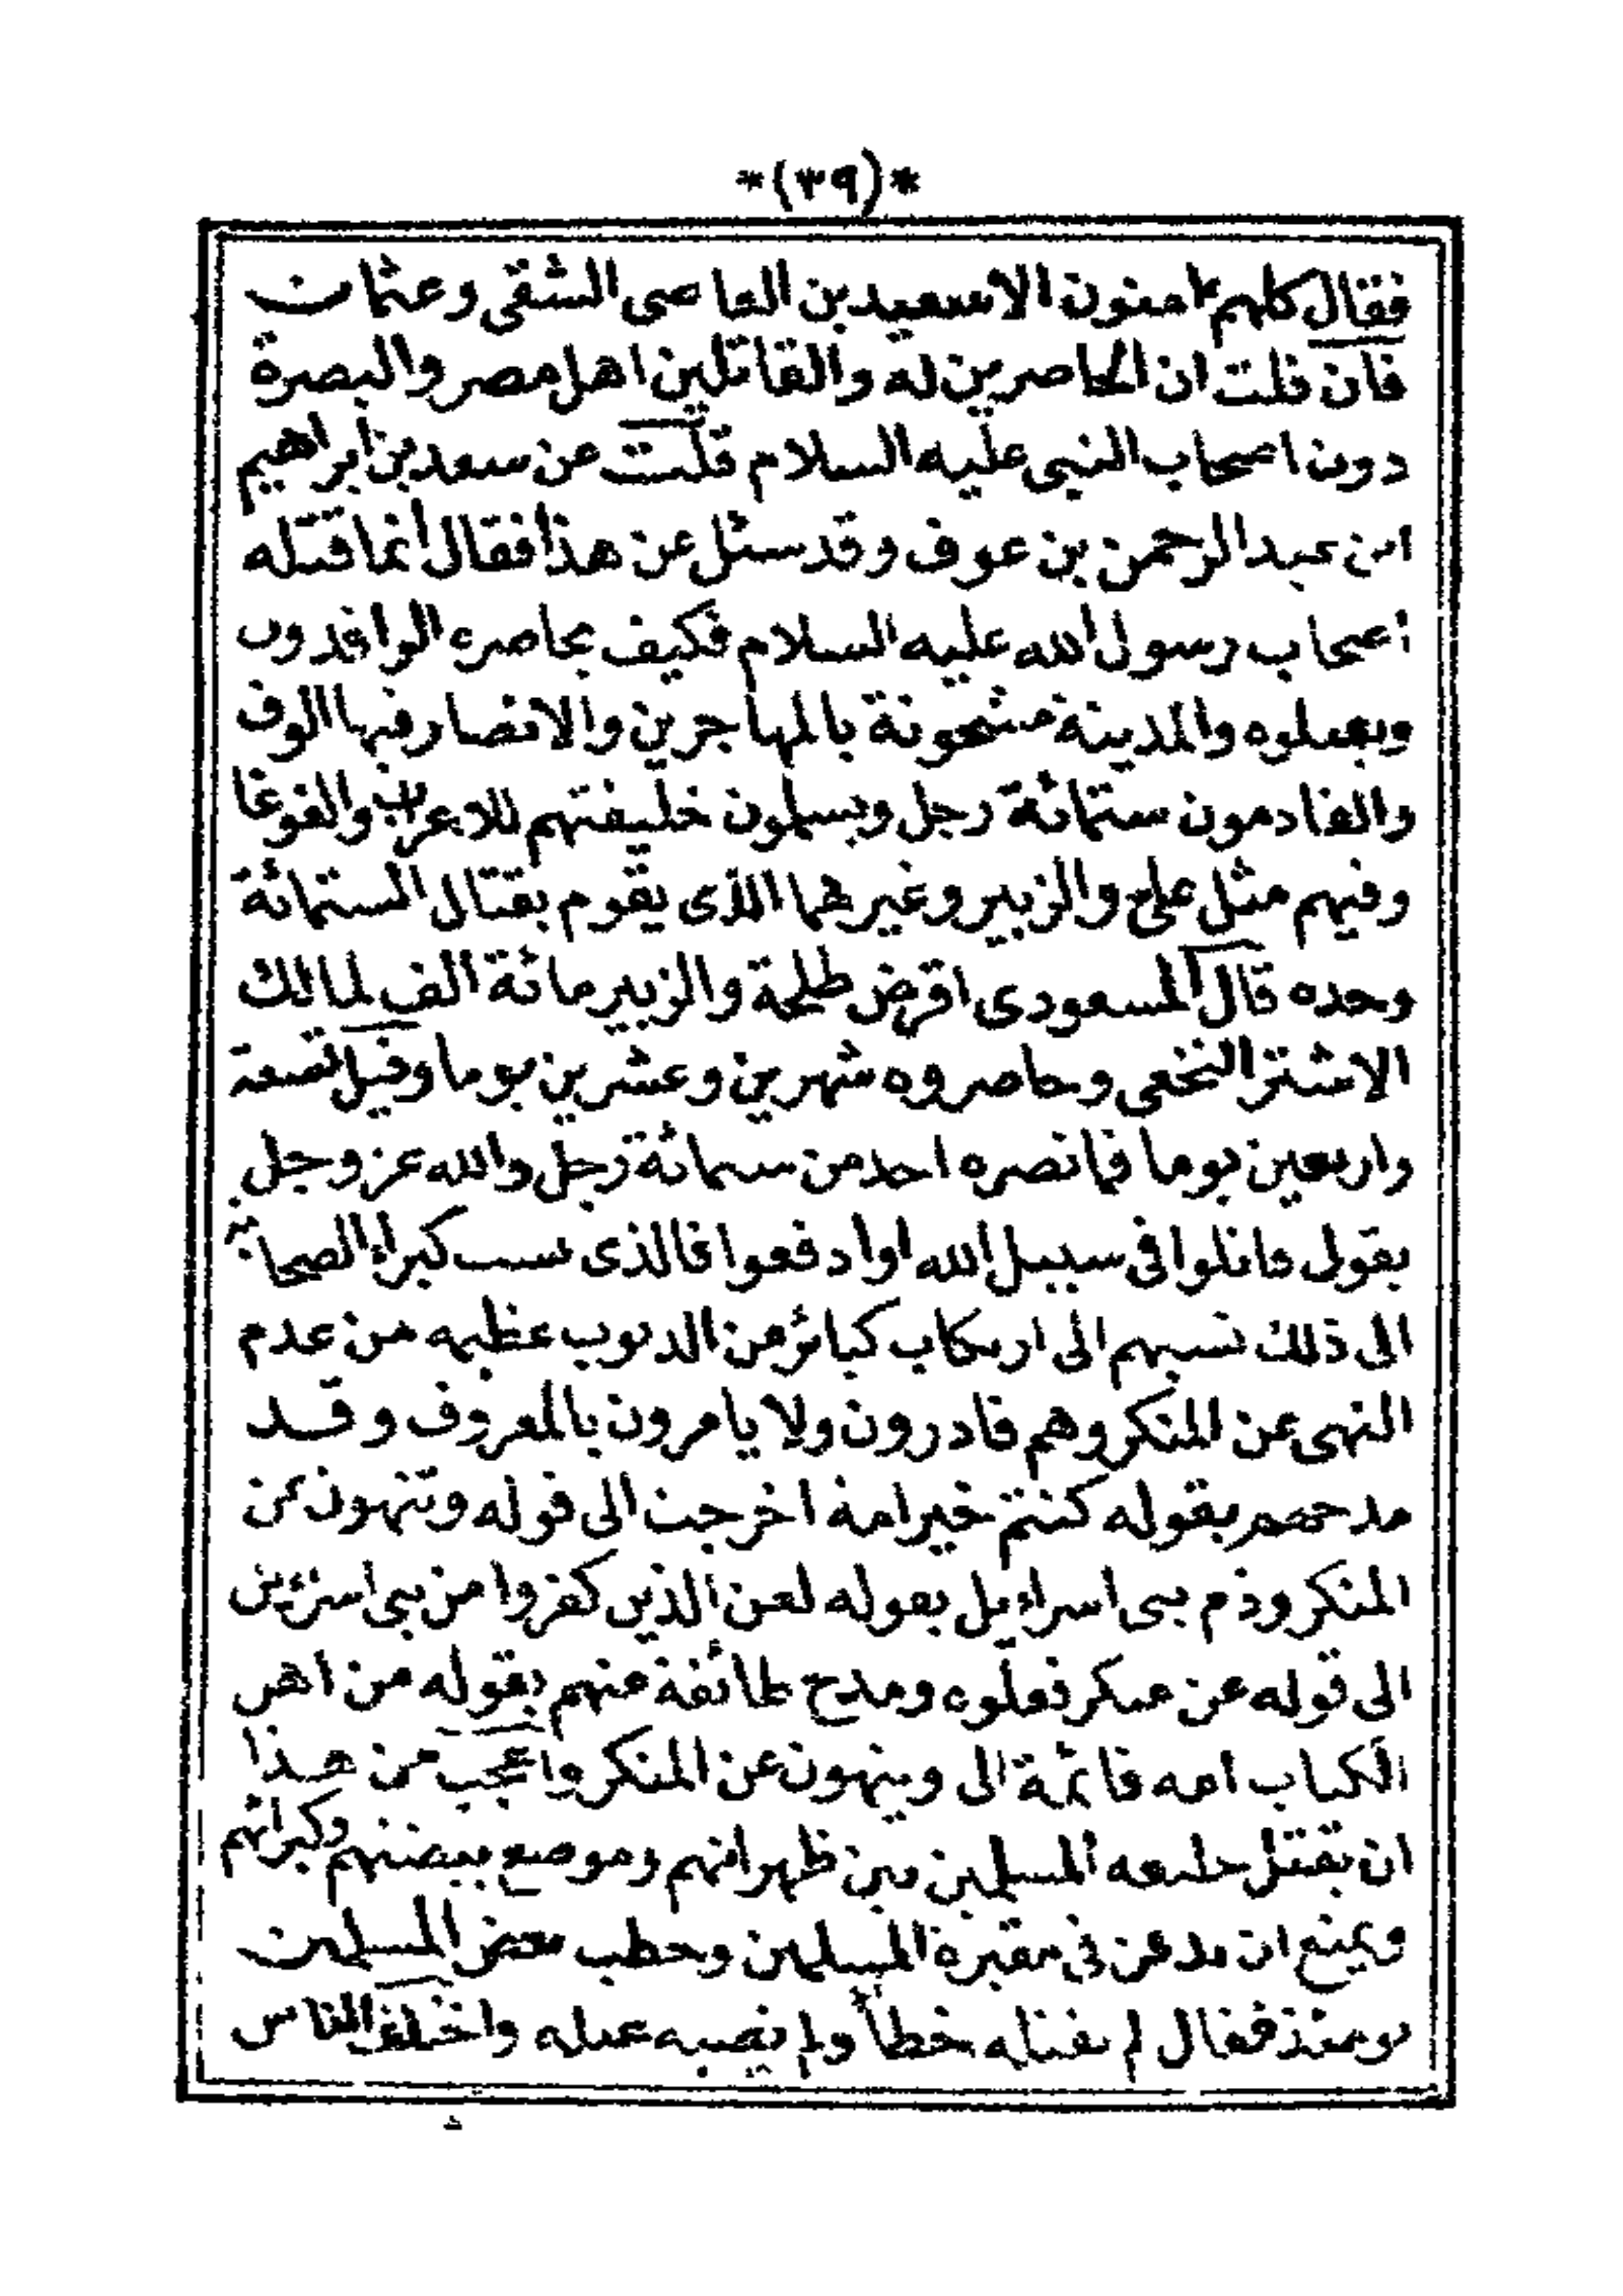 *(٣٩)*
فقال كلهم امنون الا سعيد بن العاصى الشقى وعثمان
فان قلت ان الحاصرين له والقاتلين اهل مصر والبصرة
دون اصحاب النبى عليه السلام قلت عن سعد بن ابراهيم
ابن عبد الرحمن بن عوف وقد سئل عن هذا فقال انما قتله
اصحاب رسول الله عليه السلام فكيف يحاصره الوافدون
ويقتلوه والمدينة مشحونة بالمهاجرين والانصار فيها الوف
والقادمون ستمائة رجل ويسلمون خليفتهم للاعراب والغوغا
وفيهم مثل على والزبير وغيرهما الذى يقوم بقتال الستمائة
وحده قال المسعودى اقرض طلحة والزبير مائة الف لمالك
الاشتر النخعى وحاصروه شهرين وعشرين يوما وقيل تسعة
واربعين يوما فما نصره احد من ستمائة رجل والله عز وجل
يقول قاتلوا فى سبيل الله او ادفعوا فالذى نسب كبراء الصحابة
الى ذلك نسبهم الى ارتكاب كبائر من الذنوب عظيمه من عدم
النهى عن المنكر وهم قادرون ولا يامرون بالمعروف وقد
مدحهم بقوله كنتم خير امة اخرجت الى قوله وتنهون عن
المنكر وذم بنى اسراءيل بقوله لعن الذين كفروا من بنى اسرئيل
الى قوله عن منكر فعلوه ومدح طائفة منهم بقوله من اهل
الكتاب امه قائمة الى وينهون عن المنكر واعجب من هذا
ان يقتل خليفه المسلمين بين ظهرانهم وموضع بيضتهم وكبرائهم
ويمنع ان يدفن فى مقبرة المسلمين وخطب بعض المسلمين
يومئذ فقال لم نقتله خطأ ولم نصبه عمله واختلف الناس